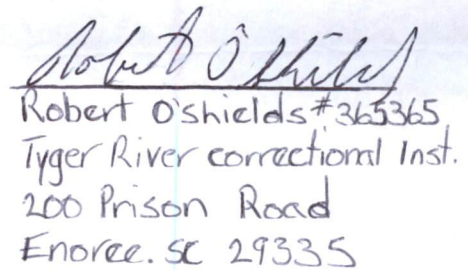 Robert O'Shields
Robert O'shields #365365
Tyger River correctional Inst.
200 Prison Road
Enoree. SC 29335